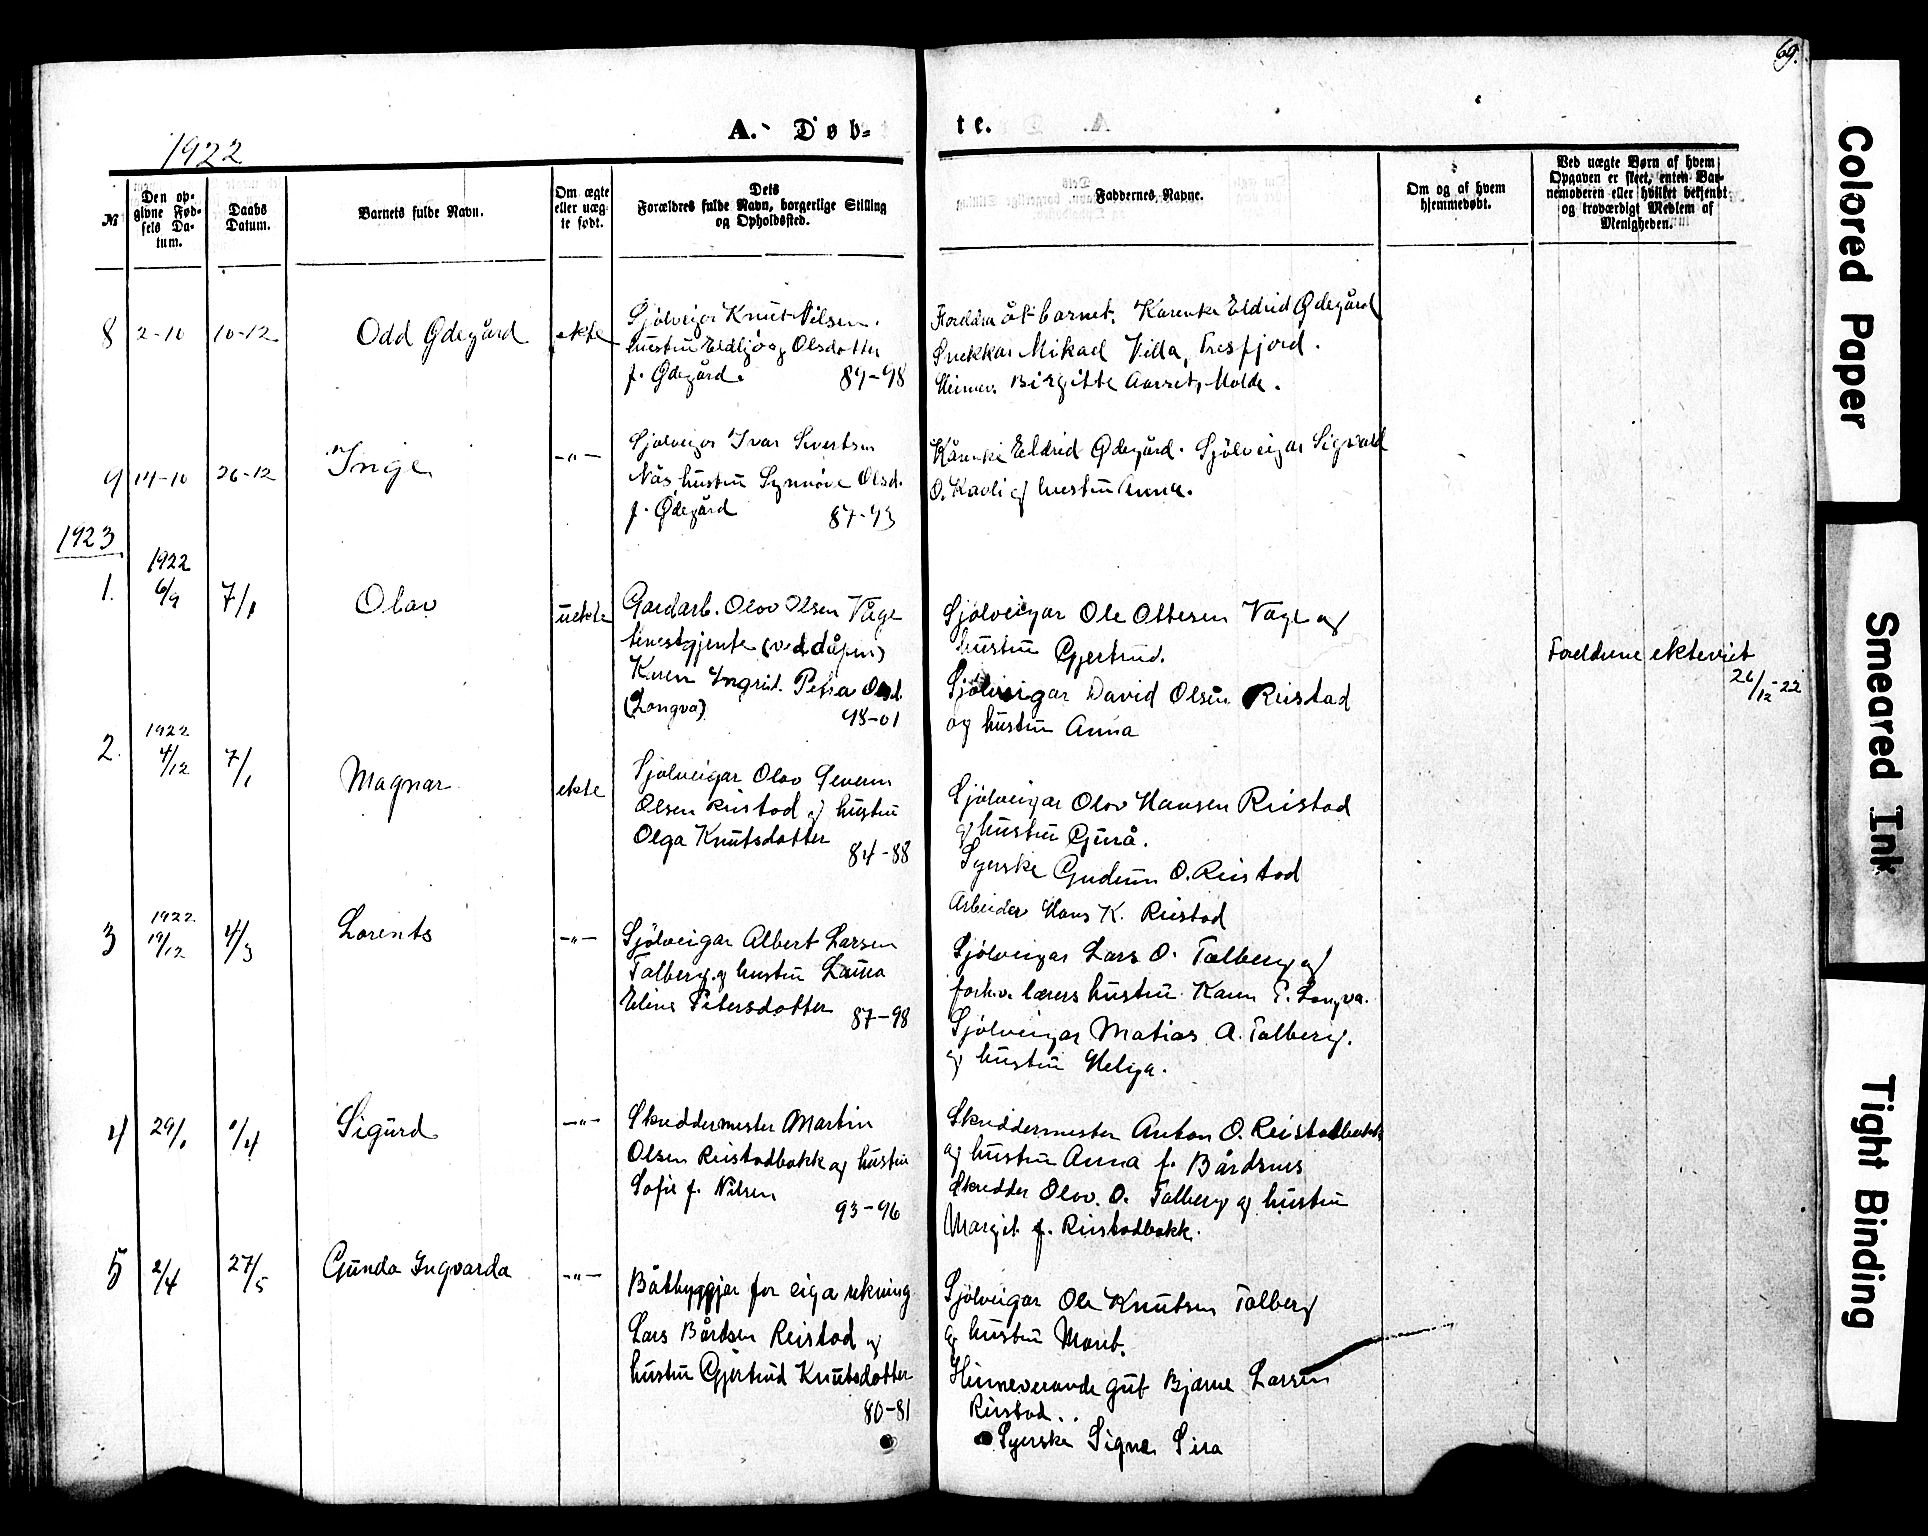 69.
A. Døb-
te.
1922
№
Den op-
givne Fød-
sels Da-
tum.
Daabs
Datum.
Barnets fulde Navn.
Om ægte
eller uæg-
te født.
Dets
Forældres fulde Navn, borgerlige Stilling
og Opholdssted.
Faddernes Navne.
Om og af hvem
hjemmedøbt.
Ved uægte Børn af hvem
Opgaven er skeet, enten Bar-
nemoderen eller hvilket bekjendt
og troværdigt Medlem af
Menigheden.
8
2-10
10-12
Odd Ødegård
ekte
Sjölveigar Knut Nilsen
hustru Eldbjörg Olsdotter
f. Ødegård.
89-98
Foreldra åt barnet. Kårenke Eldrid Ødegård
Snekkar Mikael Villa, Tresfjord.
Heimev. Birgitte Aarset, Molde.
9
14-10
26-12
Inge
-"-
Sjølveigar Ivar Sivertsen
Nås hustru Synnöve Olsd.
f. Ødegård
87-93
Kårenke Eldrid Ødegård. Sjölveigar Sigvard
O. Kavli og hustru Anna.
1923
1.
1922
6/9
7/1
Olav
uekte
Gardarb. Olov Olsen Våge
tenestgjente (ved dåpen)
Karen Ingrid Petra Olsd.
(Longva)
98-01
Sjølveigar Ole Ottesen Våge og
hustru Gjertrud.
Sjølveigar David Olsen Reistad
og hustru Anna
Foreldrene ekteviet
26/12-22
2.
1922
4/12
7/1
Magnar
ekte
Sjølveigar Olov Severin
Olsen Reistad og hustru
Olga Knutsdotter
84-88
Sjølveigar Olov Hansen Reistad
og hustru Gurå.
Syerske Gudrun O. Reistad
Arbeider Hans K. Reistad
3
1922
19/12
4/3
Lorents
-"-
Sjölveigar Albert Larsen
Talberg og hustru Laura
Eline Petersdotter
87-98
Sjölveigar Lars O. Talberg og
forhv. lærers hustru Karen P. Longva.
Sjölveigar Matias A. Talberg.
og hustru Helga.
4
29/1
1/4
Sigurd
-"-
Skreddermester Martin
Olsen Reistadbakk og hustru
Sofie f. Nilsen
93-96
Skreddermester Anton O. Reistadbakk
og hustru Anna f. Bårdsnes
Skredder Olov O. Talberg og hustru
Margit f. Reistadbakk.
5
2/4
27/5
Gunda Ingvarda
-"-
Båtbyggjar for eiga rekning
Lars Bårdsen Reistad og
hustru Gjertrud Knutsdotter
80-81
Sjölveigar Ole Knutsen Talberg
og hustru Marit.
Heimeverande gut Bjarne Larsen
Reistad.
Syerske Signe Sira
Colored Paper
Smeared Ink
Tight Binding